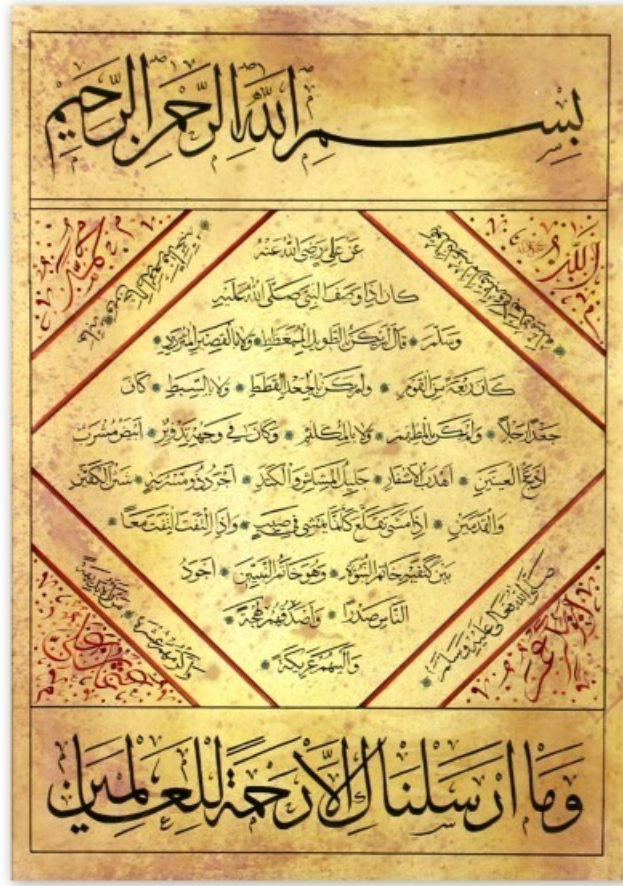 بِسْمِ اللهِ الرَّحْمٰنِ الرَّحِيْمِ
الله
محمد
عَنْ عَلِيٍّ رَضِيَ اللهُ عَنْهُ
كَانَ اِذَا وَصَفَ النَّبِيَّ صَلَّى اللهُ عَلَيْهِ
وَسَلَّمَ * قَالَ لَمْ يَكُنْ بِالطَّوِيلِ الْمُمَغَّطِ * وَلَا بِالْقَصِيرِ الْمُتَرَدِّدِ *
كَانَ رَبْعَةً مِنَ الْقَوْمِ * وَلَمْ يَكُنْ بِالْجَعْدِ الْقَطَطِ * وَلَا بِالسَّبِطِ * كَانَ
جَعْدًا رَجِلًا * وَلَمْ يَكُنْ بِالْمُطَهَّمِ * وَلَا بِالْمُكَلْثَمِ * وَكَانَ فِي وَجْهِهِ تَدْوِيرٌ * اَبْيَضُ مُشْرَبٌ
اَدْعَجُ الْعَيْنَيْنِ * اَهْدَبُ الْاَشْفَارِ * جَلِيلُ الْمُشَاشِ وَالْكَتَدِ * اَجْرَدُ ذُو مَسْرُبَةٍ * شَثْنُ الْكَفَّيْنِ
وَالْقَدَمَيْنِ * اِذَا مَشَى تَقَلَّعَ كَاَنَّمَا يَمْشِي فِي صَبَبٍ * وَاِذَا الْتَفَتَ الْتَفَتَ مَعًا *
بَيْنَ كَتِفَيْهِ خَاتَمُ النُّبُوَّةِ * وَهُوَ خَاتَمُ النَّبِيِّينَ * اَجْوَدُ
النَّاسِ صَدْرًا * وَاَصْدَقُهُمْ لَهْجَةً *
وَاَلْيَنُهُمْ عَرِيكَةً *
صَلَّى اللهُ تَعَالَى عَلَيْهِ وَسَلَّمَ *
وَاَكْرَمُهُمْ عِشْرَةً *
وَمَا اَرْسَلْنَاكَ اِلَّا رَحْمَةً لِلْعَالَمِينَ